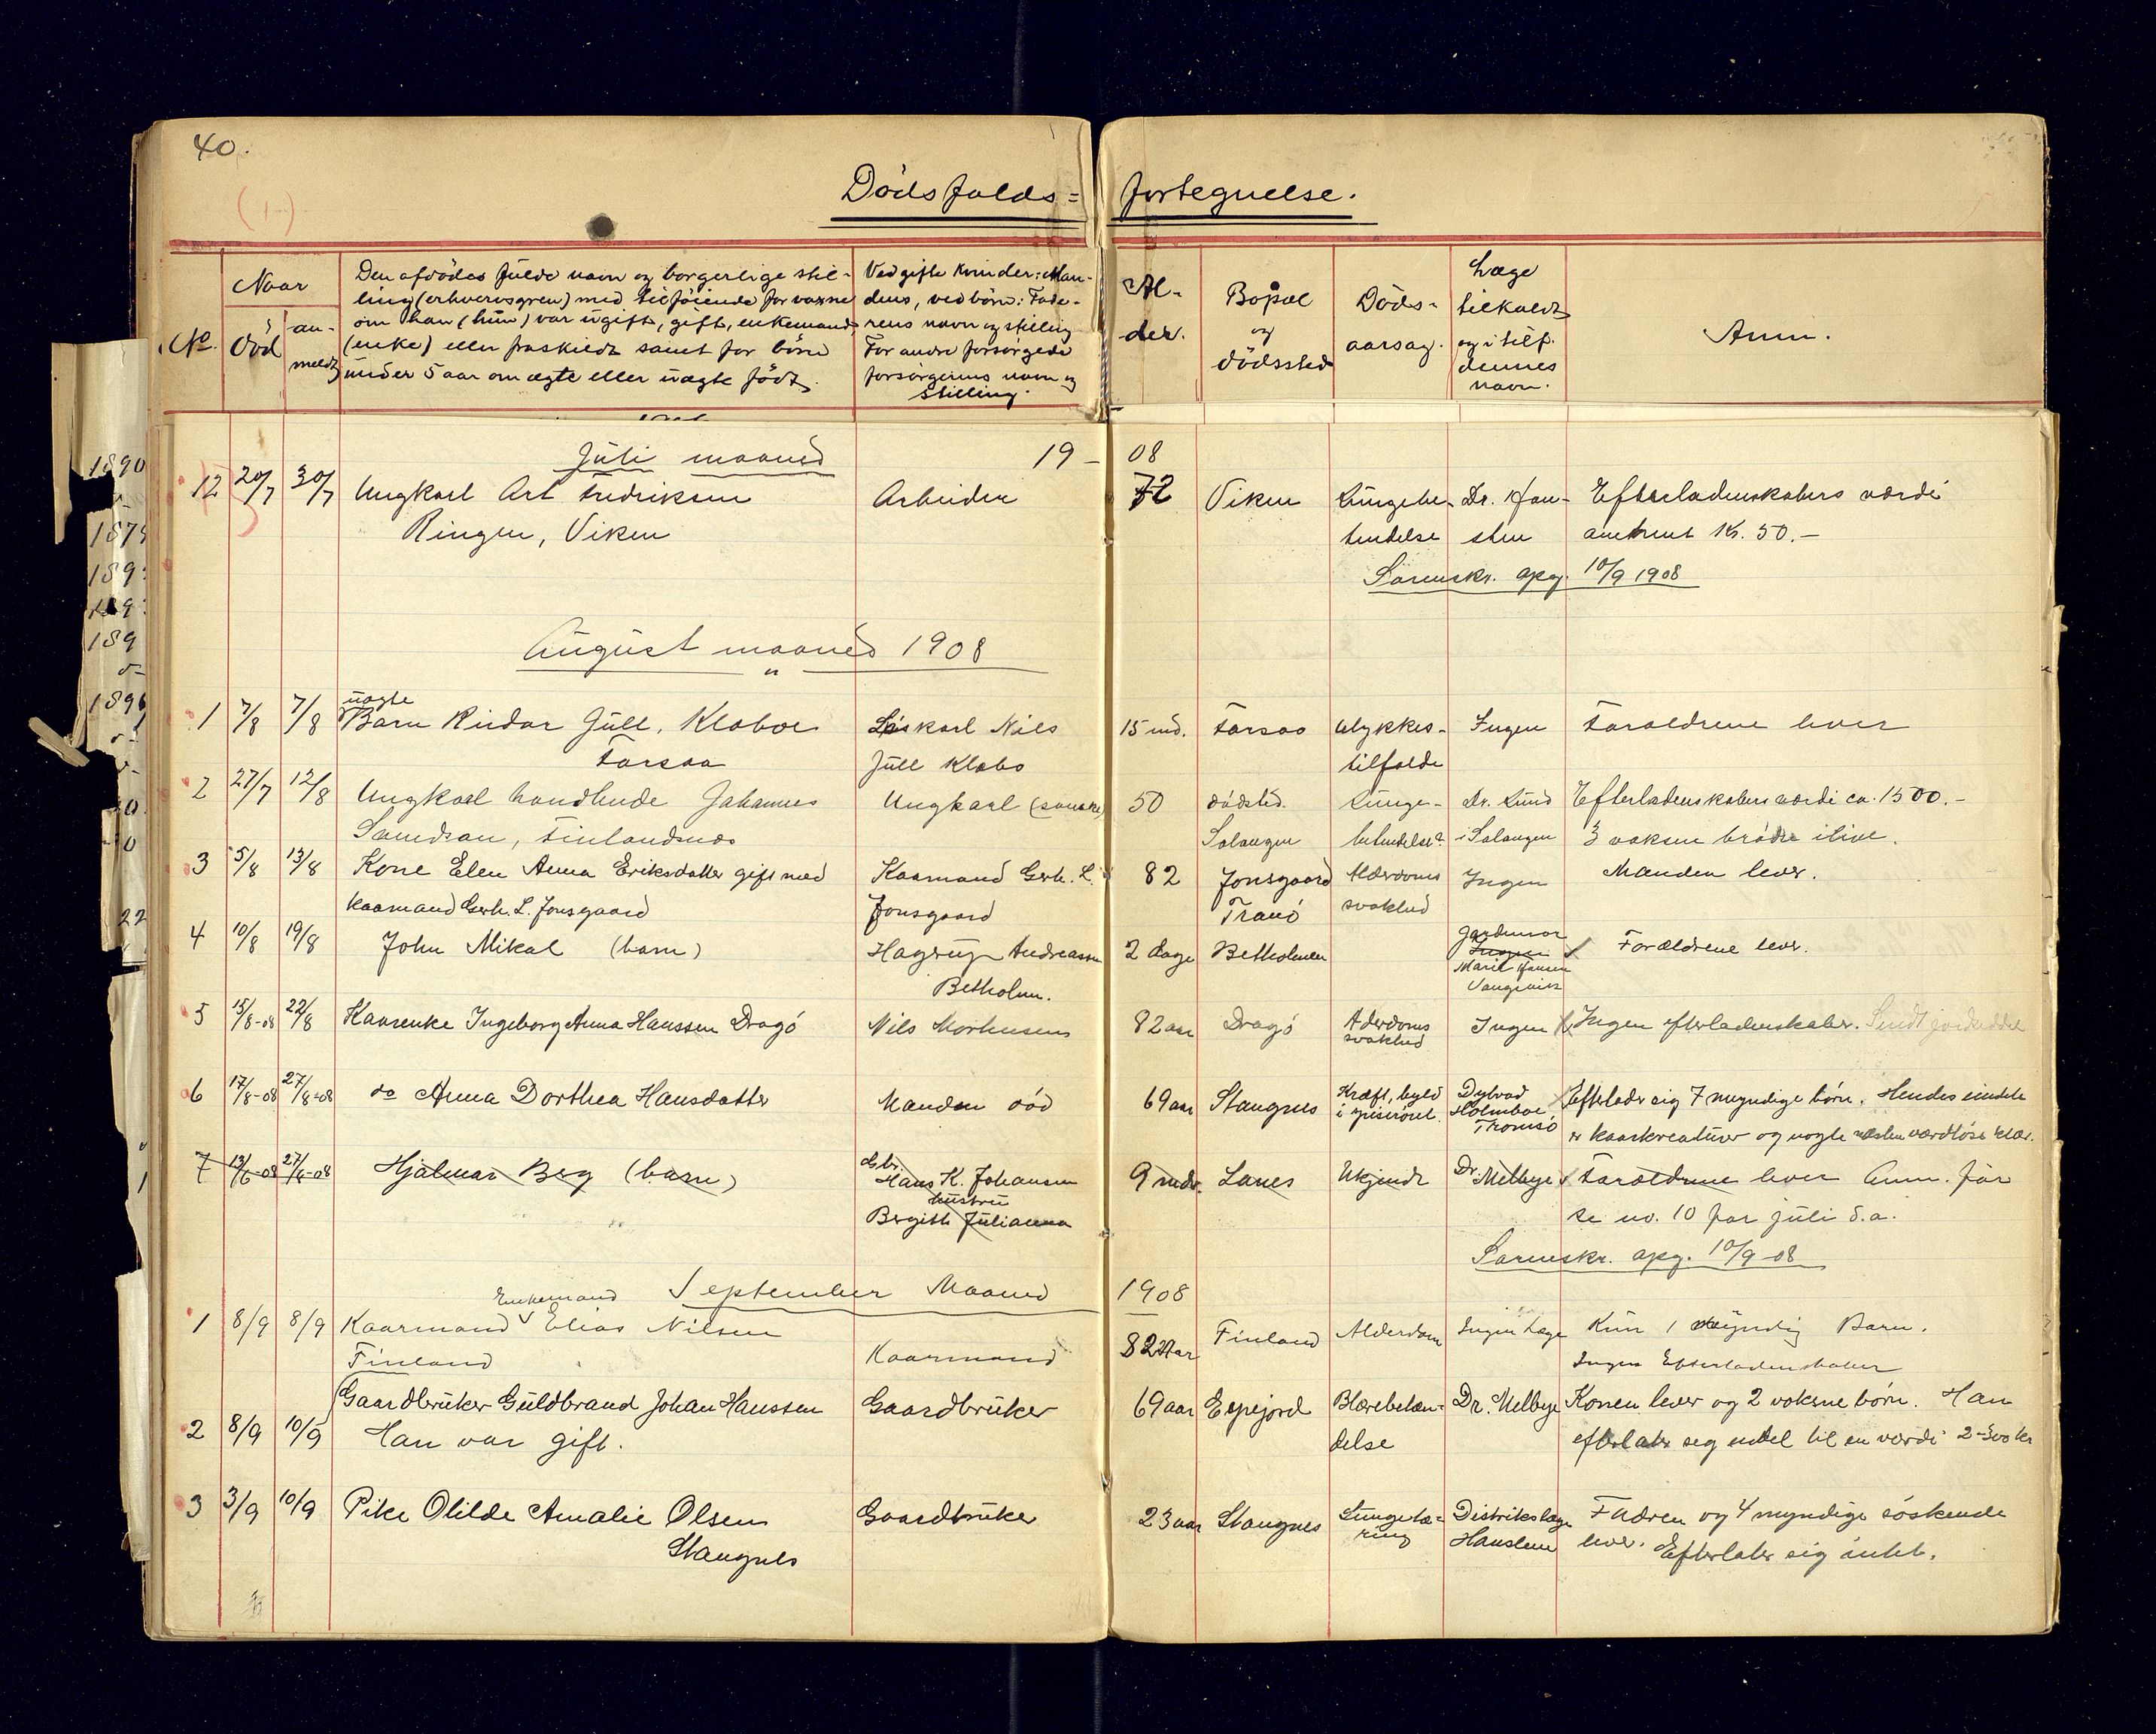 40.
Dödsfalds= fortegnelse.
No.
Naar
död
an-
meldt
Den afdödes fulde navn og borgerlige stil-
ling (erhvervsgren) med tilföiende for voxne
om han (hun) var ugift, gift, enkemand
(enke) eller fraskildt samt for börn
under 5 aar om ægte eller uægte födt.
Ved gifte kvinder: Man-
dens, ved börn: Fade-
rens navn og stilling
For andre forsörgede
forsörgerens navn og
stilling.
Al-
der.
Bopæl
og
dödssted
Döds-
aarsag.
Læge
tilkaldt
og i tilf.
dennes
navn.
Anm.
Juli maaned 19- 08
12 20/7 30/7 Ungkarl Art Fredriksen Arbeider 72 Viken Lungebe- Dr. Han- Efterladenskabers værdi
Ringen, Viken tendelse sten omtrent Kr. 50.-
Sorenskr. opg. 10/9 1908
August maaned 1908
uægte
1 7/8 7/8 Barn Reidar Jull. Klaboe Løskarl Nils 15 md. Forsaa Ulykkes- Ingen Foraldrene lever
Forsaa Jull Klabo tilfælde
2 27/7 12/8 Ungkarl handlende Johannes Ungkarl (samme) 50 dödsted. Lunge- Dr. Lund Efterladenskabers værdi ca. 1500.-
Samdsan, Finlandsnes Salangen betendelse? i Salangen 3 voksne brödre ilive.
3 5/8 13/8 Kone Elen Anna Eriksdatter gift med Kaarmand Gerh. L. 82 Jonsgaard Alderdoms Ingen Manden lever.
kaarmand Gerh. L. Jonsgaard Jonsgaard Tranö svakhed
4 10/8 19/8 John Mikal (barn) Hagerup Andreassen 2 dage Betholmen Ingen Forældrene lever.
Gardemor
Marit Hansen
Vangsvik
Betholm.
5 15/8-08 22/8 Kaarenke Ingeborg Anna Hanssen Dragö Nils Morthensens 82 aar Dragö Aderdoms Ingen Ingen efterladenskaber.
svakhed
6 17/8-08 27/8-08 do Anna Dorthea Hansdatter Manden död 69 aar Stangnes Kræft, byld Efterlader sig 7 myndige börn. Hendes eiendele
i spiserörret Holmboe, Tromsö er kaarkreaturer og nogle næsten værdlöse klær.
7 13/6-08 27/8-08 Hjalmar Berg (barn) Gbr. Hans K. Johansen 9 mdr. Lanes Ukjendt Dr. Melbye Foraldrene lever Anm. för
hustru se no. 10 for juli d.a.
Bergith Julianna
Sorenskr. opg. 10/9-08
September Maaned 1908
Enkemand
1 8/9 8/9 Kaarmand Elias Nilsen Kaarmand 82 Aar Finland Alderdom Ingen Læge Kun 1 myndig Barn.
Finland Ingen Efterladenskaber
2 8/9 10/9 Gaardbruker Guldbrand Johan Hanssen Gaardbruker 69 aar Espejord Blærebeten- Dr. Melbye Konen lever og 2 voksne börn. Han
Han var gift. delse efterlater seg endel til en værdi 2-300 kr
3 3/9 10/9 Pike Olilde Amalie Olsen Gaardbruker 23 aar Stangnes Lungetæ- Distriktslæge Fadren og 4 myndige söskende
Stangnes ring Hansteen lever. Efterlater sig intet.